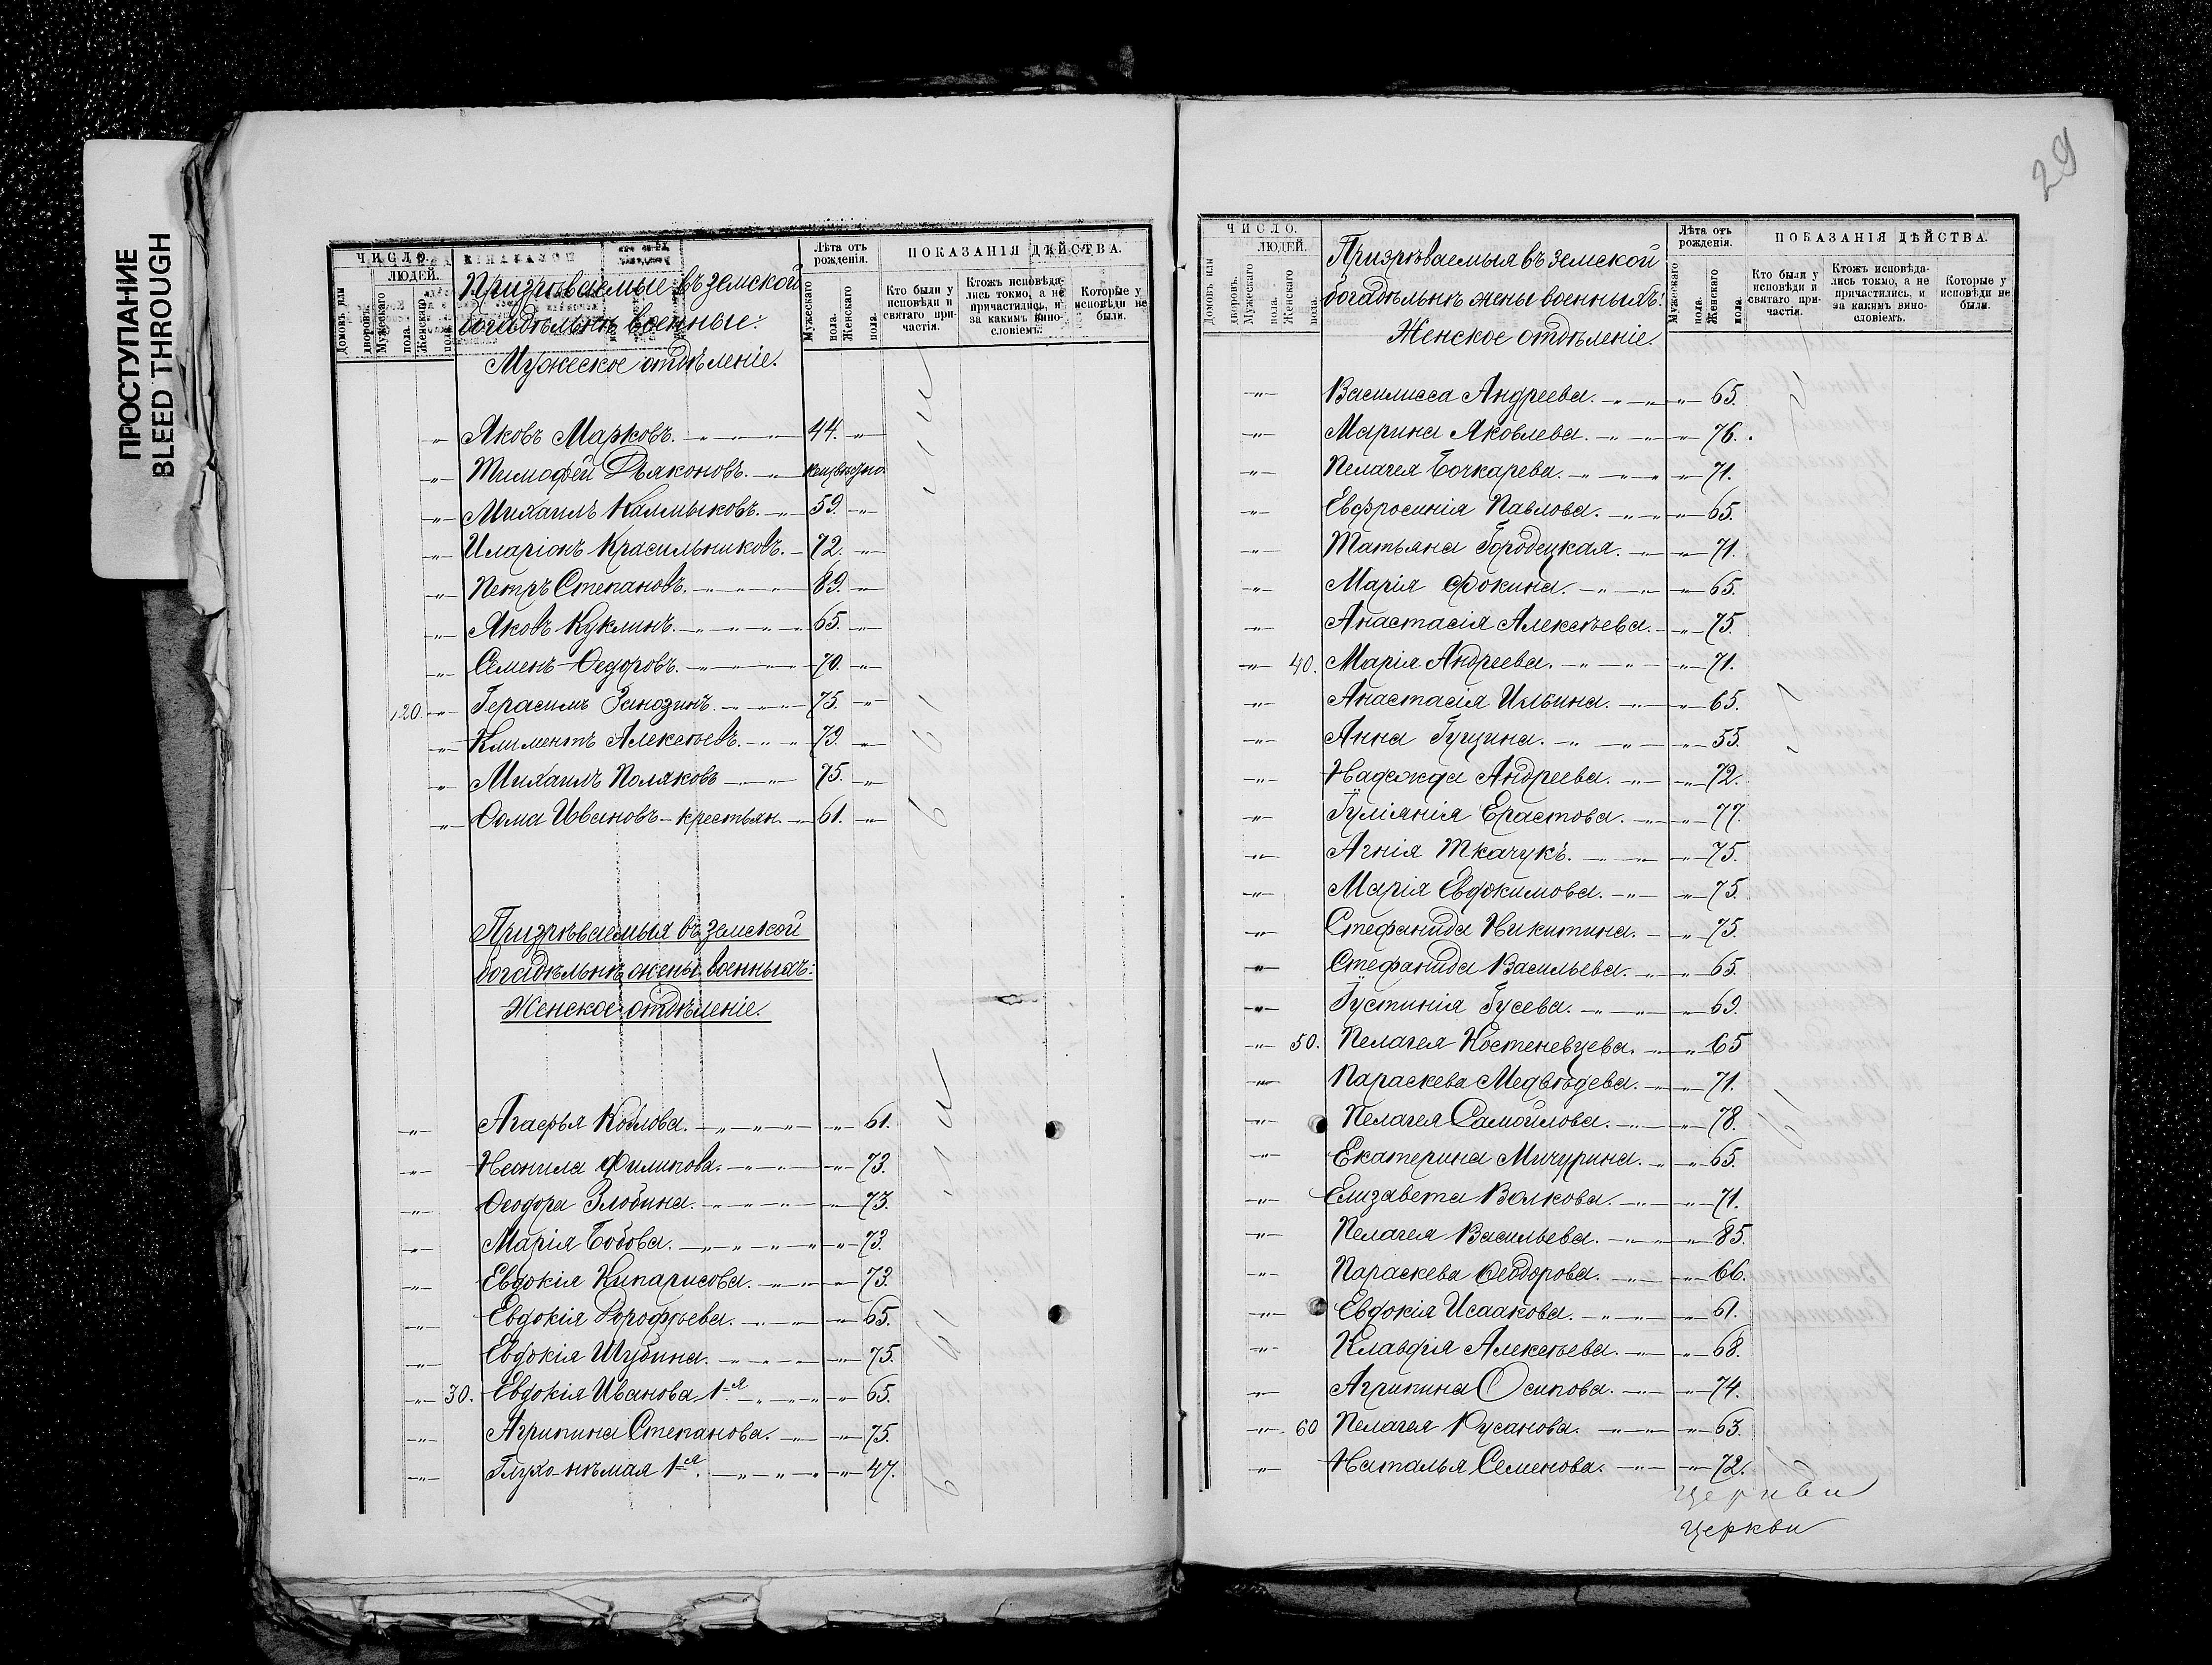 ПРОСТУПАНИЕ
BLEED THROUGH
ЧИСЛО.
ЛЮДЕЙ.
Домовъ или дворовъ.
Мужескаго пола.
Женскаго пола.
Призрѣваемые въ земской
богадѣльнѣ военные:
Мужеское отдѣленіе.
Лѣта отъ рожденія.
Мужескаго пола.
Женскаго пола.
ПОКАЗАНІЯ ДѢЙСТВА.
Кто были у исповѣди и святаго причастія.
Ктожъ исповѣдались токмо, а не причастились, и за какимъ винословіемъ.
Которые у исповѣди не были.
-„- Яковъ Марковъ. 44. -„-
-„- Тимофей Дьяконовъ.
-„- Михаилъ Калмыковъ. 59. -„-
-„- Иларіонъ Красильниковъ. 72. -„-
-„- Петръ Степановъ. 89. -„-
-„- Яковъ Куклинъ. 65. -„-
-„- Семенъ Ѳедоровъ. 70. -„-
120. -„- Герасимъ Занозинъ. 75. -„-
-„- Климентъ Алексѣевъ. 79. -„-
-„- Михаилъ Поляковъ 75. -„-
-„- Ѳома Ивановъ - крестьян. 61. -„-
Призрѣваемыя въ земской
богадѣльнѣ жены военныхъ:
Женское отдѣленіе.
-„- Агафья Козлова. -„- 61.
-„- Неонила Филипова. -„- 73.
-„- Ѳеодора Злобина. -„- 73.
-„- Марія Бобова. -„- 73.
-„- Евдокія Кипарисова. -„- 73.
-„- Евдокія Дорофѣева. -„- 65.
-„- Евдокія Шубина. -„- 75.
-„- 30. Евдокія Иванова 1-я -„- 65.
-„- Агрипина Степанова. -„- 75.
-„- Глухо-нѣмая 1-я. -„- 47.
29
ЧИСЛО.
ЛЮДЕЙ.
Домовъ или дворовъ.
Мужескаго пола.
Женскаго пола.
Призрѣваемыя въ земской
богадѣльнѣ жены военныхъ:
Женское отдѣленіе.
Лѣта отъ рожденія.
Мужескаго пола.
Женскаго пола.
ПОКАЗАНІЯ ДѢЙСТВА.
Кто были у исповѣди и святаго причастія.
Ктожъ исповѣдались токмо, а не причастились, и за какимъ винословіемъ.
Которые у исповѣди не были.
-„- Василисса Андреева. -„- 65.
-„- Марина Яковлева. -„- 76.
-„- Пелагея Бочкарева. -„- 71.
-„- Евфросинія Павлова. -„- 65.
-„- Татьяна Городецкая. -„- 71.
-„- Марія Фокина. -„- 65.
-„- Анастасія Алексѣева. -„- 75.
-„- 40. Марія Андреева. -„- 71.
-„- Анастасія Ильина. -„- 65.
-„- Анна Гущина. -„- 55.
-„- Надежда Андреева. -„- 72.
-„- Іуліанія Ерастова. -„- 77.
-„- Агнія Ткачукъ. -„- 75.
-„- Марія Евдокимова. -„- 75.
-„- Стефанида Никитина. -„- 75.
-„- Стефанида Васильева. -„- 65.
-„- Іустинія Гусева. -„- 69.
-„- 50. Пелагея Костеневцева. -„- 65
-„- Параскева Медвѣдева. -„- 71.
-„- Пелагея Самойлова. -„- 78.
-„- Екатерина Мичурина. -„- 65.
-„- Елизавета Волкова. -„- 71.
-„- Пелагея Васильева. -„- 85.
-„- Параскева Ѳеодорова. -„- 66.
-„- Евдокія Исаакова. -„- 61.
-„- Клавдія Алексѣева. -„- 68.
-„- Агрипина Осипова. -„- 74.
-„- 60 Пелагея Русанова. -„- 63.
-„- Наталья Семенова. -„- 72.
Церкви
Церкви